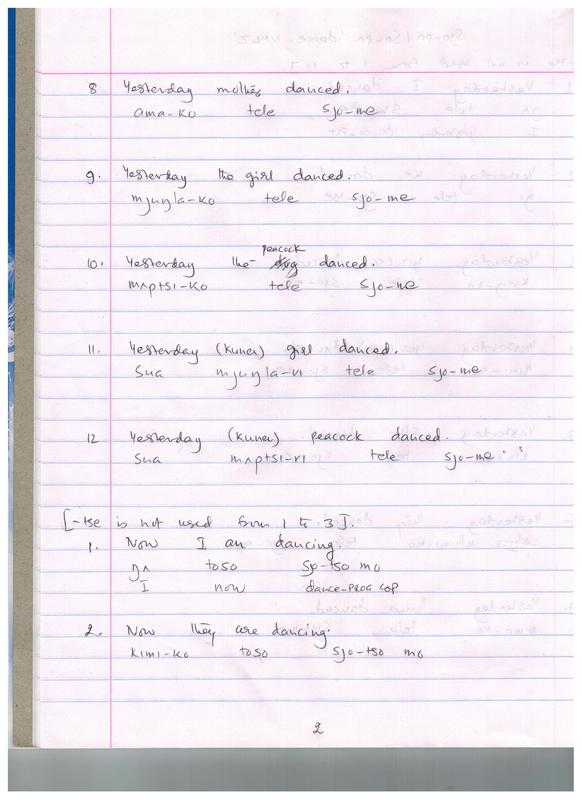 8 Yesterday mother danced.
ama-ko tele sjo-me
9. Yesterday the girl danced.
mjuŋla-ko tele sjo-me
peacock
10. Yesterday the danced.
mʌptsi-ko tele sjo-me
11. Yesterday (Kuner) girl danced.
sua mjuŋla-ri tele sjo-me
12 Yesterday (Kuner) peacock danced.
sua mʌptsi-ri tele sjo-me
[-tse is not used from 1 to 3].
1. Now I am dancing.
ŋʌ toso sjo-tso mo
I now dance-PROG COP
2. Now they are dancing.
kimi-ko toso sjo-tso mo
2